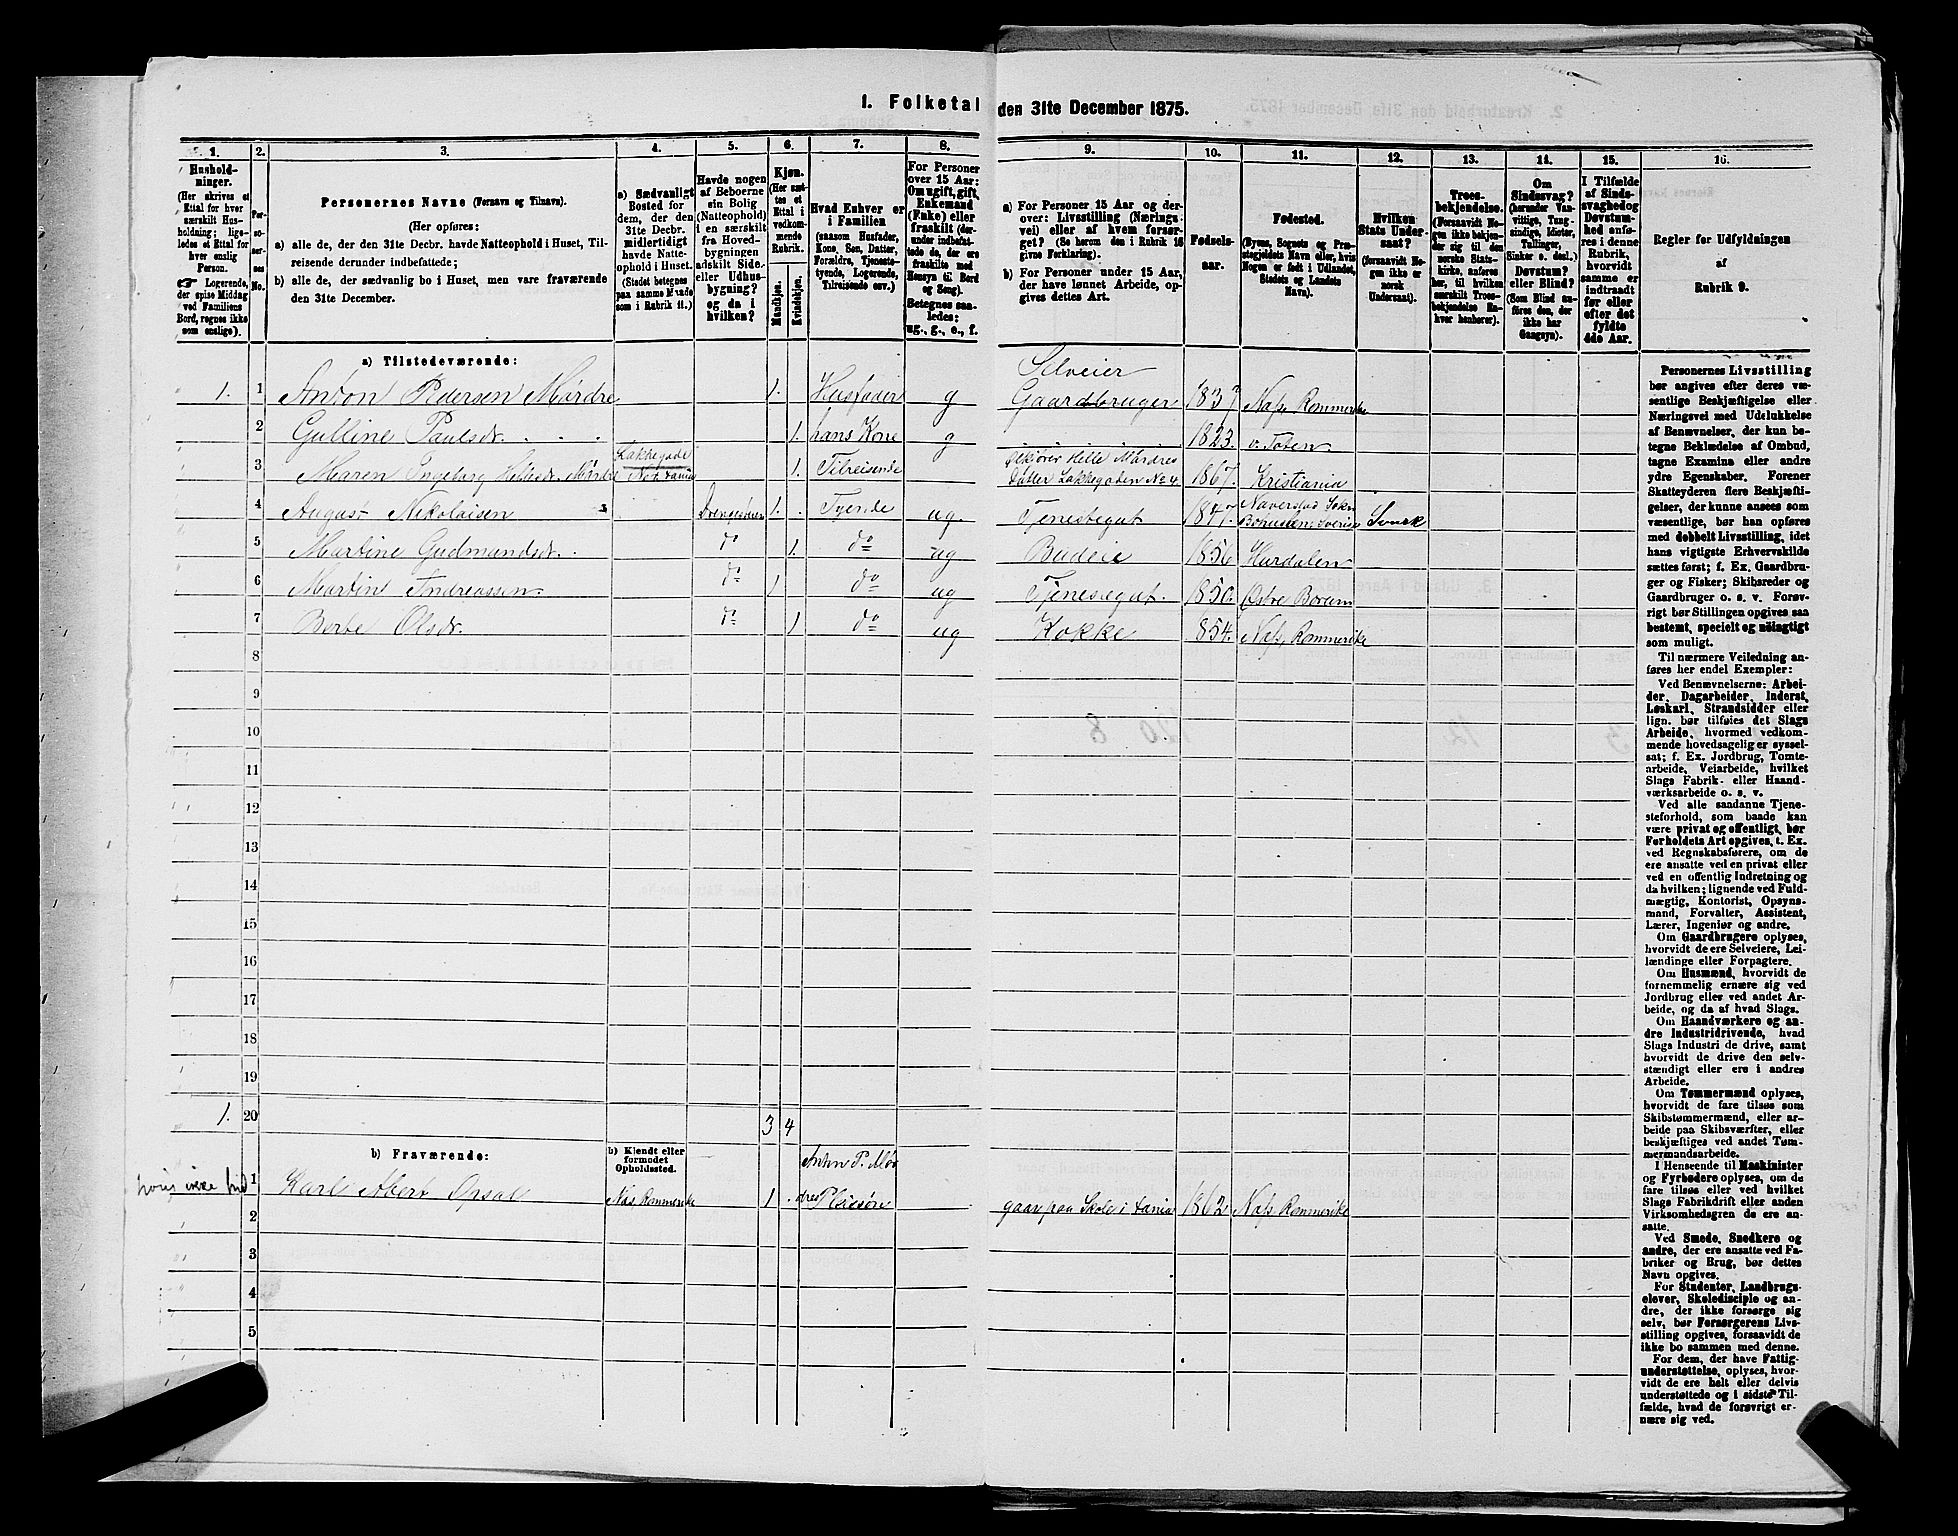 1. Folketal den 31te December 1875.
1. 2. 3. 4. 5. 6. 7. 8. 9. 10. 11. 12. 13. 14. 15. 16.
Husholdninger.
(Her skrives et
Ettal for hver
særskilt Husholdning;
ligeledes et Ettal for
hver enslig
Person.
☛ Logerende,
der spise Middag
ved Familiens
Bord, regnes ikke
som enslige).
Personernes No.
Personernes Navne (Fornavn og Tilnavn).
(Her opføres:
a) alle de, der den 31te Decbr. havde Natteophold i Huset, Tilreisende derunder indbefattede;
b) alle de, der sædvanlig bo i Huset, men vare fraværende
den 31te December.
a) Sædvanligt
Bosted for
dem, der den
31te Decbr.
midlertidigt
havde Natteophold i Huset.
(Stedet betegnes
paa samme Maade
som i Rubrik 11.)
Havde nogen
af Beboerne
sin Bolig
(Natteophold)
i en særskilt
fra Hovedbygningen
adskilt Side-
eller Udhusbygning?
og da i
hvilken?
Kjøn.
(Her sættes et
Ettal i
vedkommende
Rubrik.
Mandkjøn.
Kvindekjøn.
Hvad Enhver er
i Familien
(saasom Husfader,
Kone, Søn, Datter,
Forældre, Tjenestetyende, Logerende,
Tilreisende osv.)
For Personer
over 15 Aar:
Om ugift, gift,
Enkemand
(Enke) eller
fraskilt (derunder indbefattede de, der ere
fraskilte med
Hensyn til Bord
og Seng).
Betegnes saaledes:
ug., g., e., f.
a) For Personer 15 Aar og derover: Livsstilling (Næringsvei) eller af hvem forsørget? (Se herom den i Rubrik 16
givne Forklaring).
b) For Personer under 15 Aar,
der have lønnet Arbeide, opgives dettes Art.
Fødselsaar.
Fødested.
(Byens, Sognets og Præstegjeldets Navn eller, hvis
Nogen er født i Udlandet,
Stedets og Landets
Navn).
Hvilken
Stats Undersaat?
(forsaavidt Nogen ikke er
norsk
Undersaat).
Troesbekjendelse.
(Forsaavidt Nogen ikke bekjender sig til den
norske Statskirke, anføres
her, til hvilken
særskilt Troesbekjendelse Enhver henhører).
Om
Sindssvag?
(herunder Vanvittige, Tungsindige, Idioter,
Tullinger,
Sinker o. desl.)
Døvstum?
eller Blind?
(Som Blind anføres den, der
ikke har
Gangsyn).
I Tilfælde
af Sindssvaghed og
Døvstumhed anføres i denne
Rubrik,
hvorvidt
samme er
indtraadt
før eller
efter det
fyldte
4de Aar.
Regler for Udfyldningen
af
Rubrik 9.
a) Tilstedeværende:
1. 1 Anton Pedersen Mørdre 1. Husfader g Selveier Gaardbruger 1837 Næs, Romerike
2 Gulline Paulsdr. 1. hans Kone g 1823. v. Toten
3 Maren Ingeborg Mørdre Lakkegade 1. Tilreisende Helle Mørdres Datter Lakkegaden No 4 1867. Kristiania
4 August Nikolaisen 1. Tyende ug. Tjenestegut 1847. Naverstad Sokn Svensk
5 Martine Gudmundsdr. do 1. do ug Budeie 1856 Hurdalen
6 Martin Andreassen do 1 do ug Tjenestegut. 1850. Østre
7 Berte Olsdr. do 1 do ug Kokke 854. Næs, Romerike
8
9
10
11
12
13
14
15
16
17
18
19
1. 20 3 4
b) Fraværende: b) Kjendt eller
formodet
Opholdssted.
1 Karl Albert Opsal Næs Romerike 1 Anton P. Mørdres Pleiesøn gaar paa Skole i 1862 Næs, Romerike
2
3
4
5
Personernes Livsstilling
bør angives efter deres væsentlige Beskjæftigelse eller
Næringsvei med Udelukkelse
af Benævnelser, der kun betegne Beklædelse af Ombud,
tagne Examina eller andre
ydre Egenskaber. Forener
Skatteyderen flere Beskjæftigelser, der kunne ansees som
væsentlige, bør han opføres
med dobbelt Livsstilling, idet
hans vigtigste Erhvervskilde
sættes først; f. Ex. Gaardbruger og Fisker; Skibsreder og
Gaardbruger o. s. v. Forøvrigt bør Stillingen opgives saa
bestemt, specielt og nöiagtigt
som muligt.
Til nærmere Veiledning anføres her endel Exempler:
Ved Benævnelserne: Arbeider, Dagarbeider, Inderst,
Løskarl, Strandsidder eller
lign. bør tilføies det Slags
Arbeide, hvormed vedkommende hovedsagelig er sysselsat; f. Ex. Jordbrug, Tomtearbeide, Veiarbeide, hvilket
Slags Fabrik- eller Haandværksarbeide o. s. v.
Ved alle saadanne Tjenesteforhold, som baade kan
være privat og offentligt, bør
Forholdets Art opgives, t. Ex.
ved Regnskabsførere, om de
ere ansatte ved en privat eller
ved en offentlig Indretning og
da hvilken; lignende ved Fuldmægtig, Kontorist, Opsynsmand, Forvalter, Assistent,
Lærer, Ingeniør og andre.
Om Gaardbrugere oplyses,
hvorvidt de ere Selveiere, Leilændinge eller Forpagtere.
Om Husmænd, hvorvidt de
fornemmelig ernære sig ved
Jordbrug eller ved andet Arbeide, og da af hvad Slags.
Om Haandværkere og andre Industridrivende, hvad
Slags Industri de drive, samt
hvorvidt de drive den selvstændigt eller ere i andres
Arbeide.
Om Tømmermænd oplyses,
hvorvidt de fare tilsøs som
Skibstømmermænd, eller arbeide paa Skibsværfter, eller
beskjæftiges ved andet Tømmermandsarbeide.
I Henseende til Maskinister
og Fyrbødere oplyses, om de
fare tilsøs eller ved hvilket
Slags Fabrikdrift eller anden
Virksomhedsgren de ere ansatte.
Ved Smede, Snedkere og
andre, der ere ansatte ved Fabriker og Brug, bør dettes
Navn opgives.
For Studenter, Landbrugselever, Skoledisciple og andre, der ikke forsørge sig
selv, bør Forsørgerens Livsstilling opgives, forsaavidt de
ikke bo sammen med denne.
For dem, der have Fattigunderstøttelse, oplyses, hvorvidt de ere helt eller delvis
understøttede og i sidste Tilfælde, hvad de forøvrigt ernære sig ved.